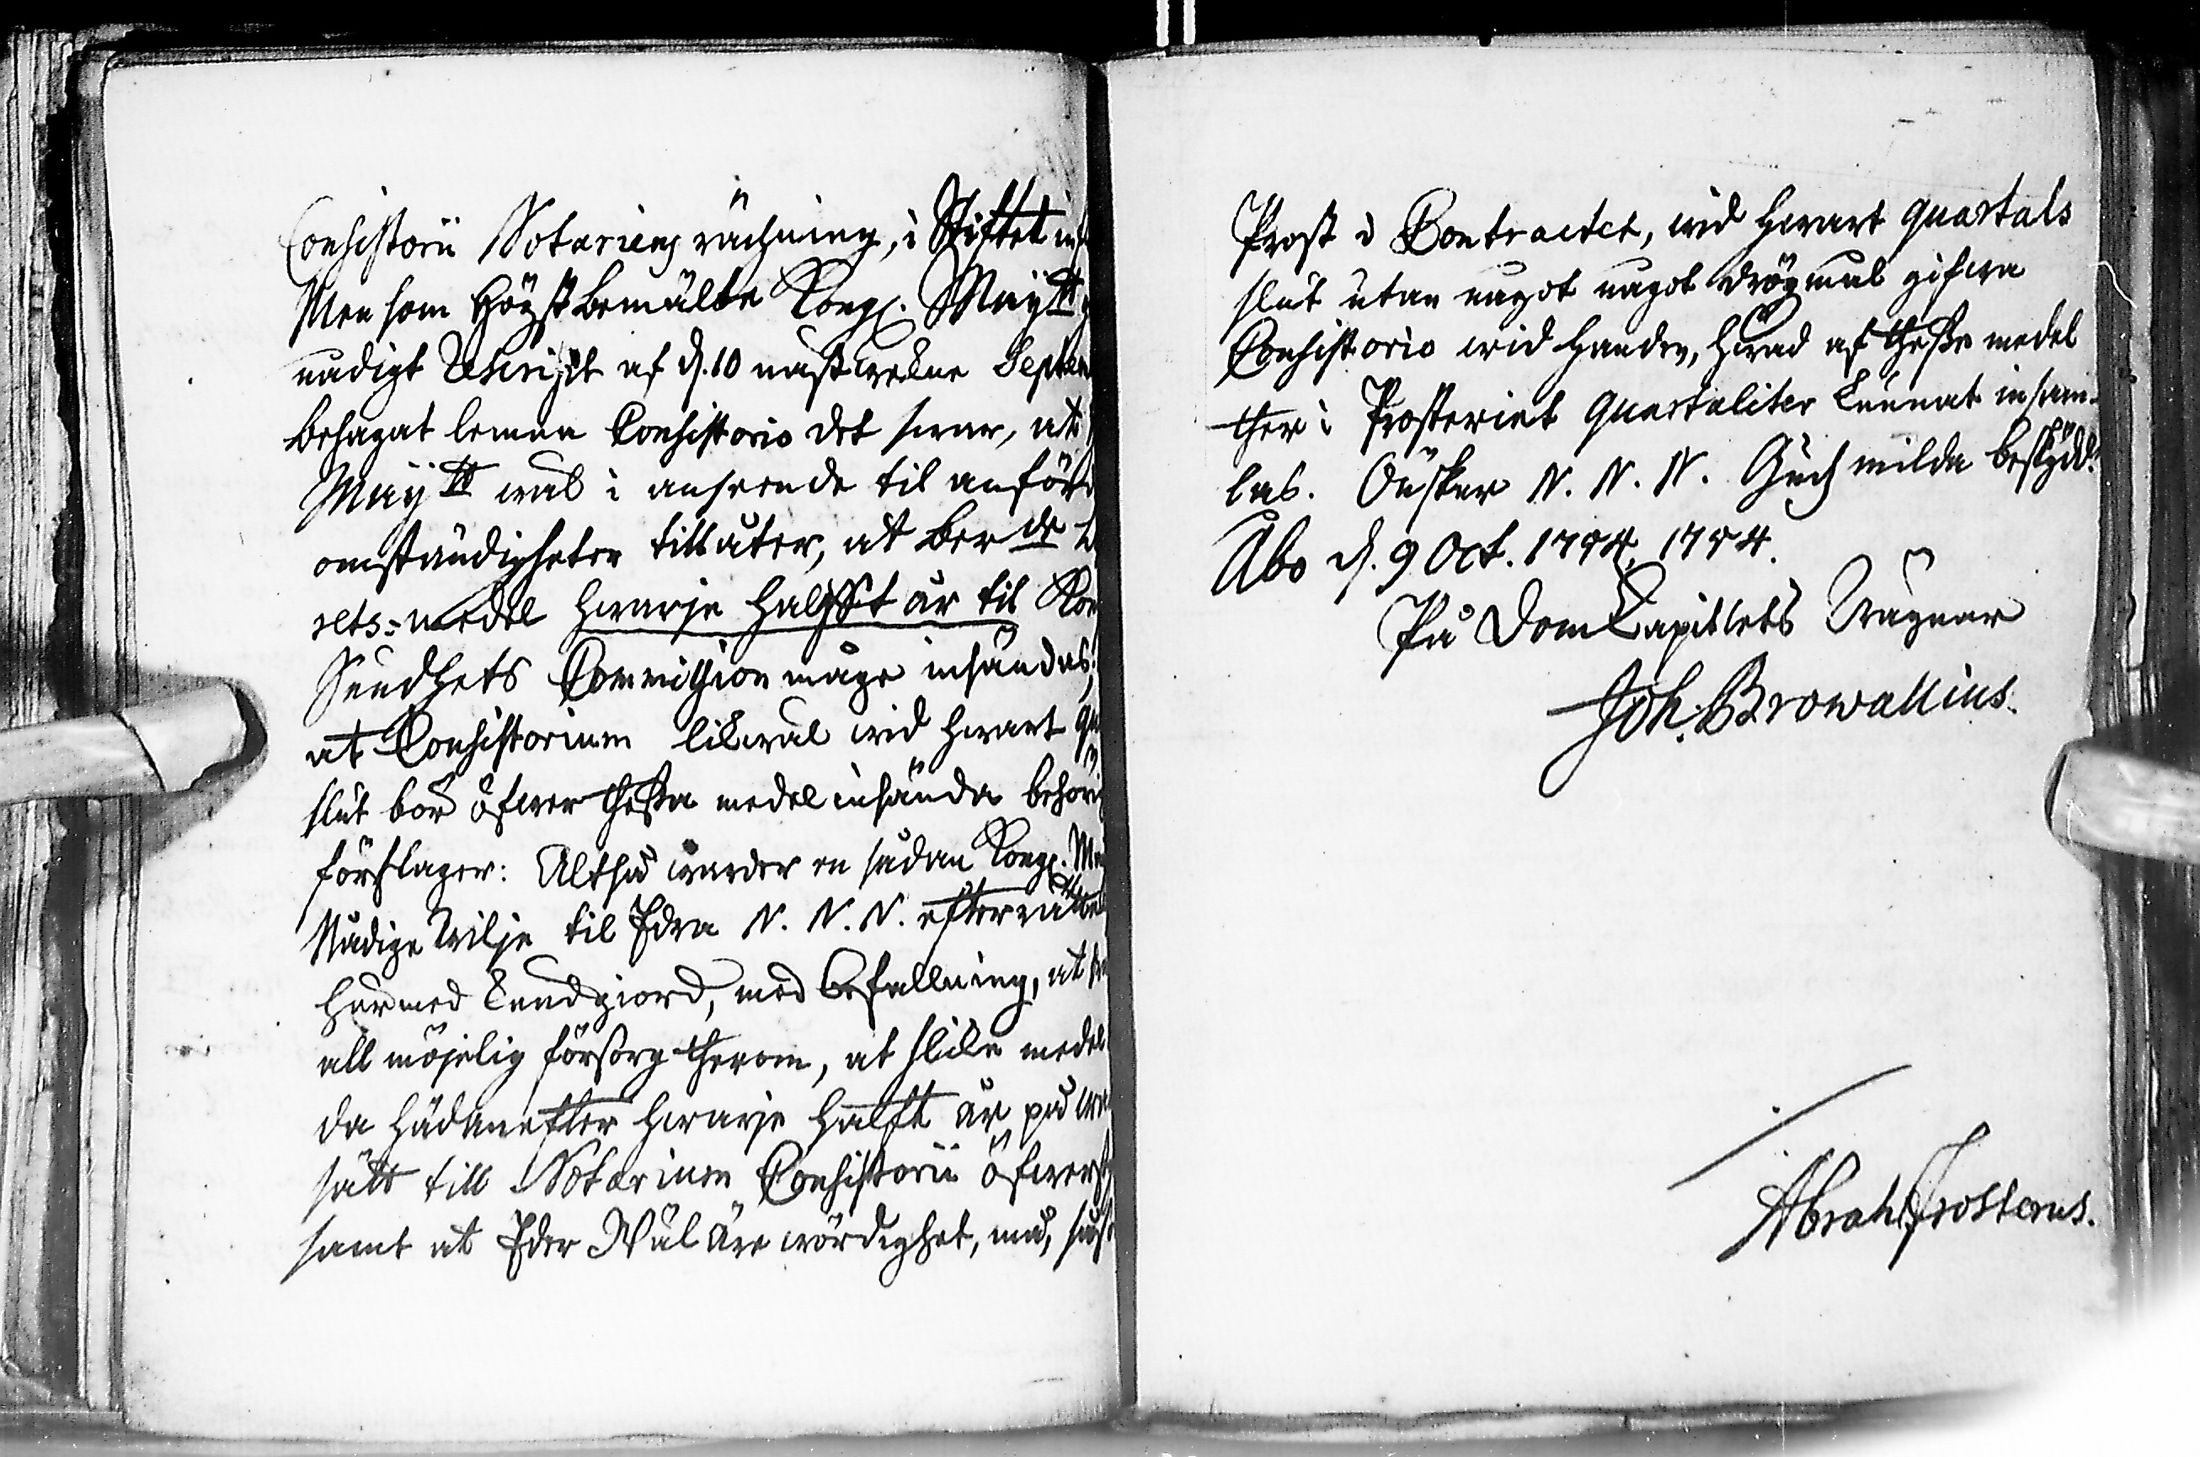 Consistorii Notariens räkning, i Stiftet ins
Men som Högstbemälte Kongl. Maij:tt
nådigt Rescript af d. 10 nästwekne Septem
behagat lemna Consistorio det swar, at
Maij:tt wäl i anseende til anförd
omständigheter tillåter, at ber:de
rets-medel hwarje halfft år til Kon
Sundhets Commission måge insändas;
at Consistorium likwäl wid hwart qu
slut bör öfwer thessa medel insända behörig
förslager: Altså warder en sådan Kongl. Ma
Nådige Wilje til Edra N. N. N. efterrättel
härmed kundgiord, med befallning, at
all möjelig försorg therom, at slika medel
da hädanefter hwarje halft år på
sätt till Notarium Consistorii öfwers
samt at Eder Wäl Äre wördighet, må, såso
Prost i Contractet, wid hwart quartals
slut utan något något drögmål gifwa
Consistorio wid handen, hwad af thesse medel
ther i Prosteriet quartaliter kunnat insam-
las. Önsker N. N. N. Guds milda beskydd.
Åbo d. 9 Oct. 1754. 1754.
På DomCapitlets Wägnar
Joh. Browallius.
Abrah Frosterus.